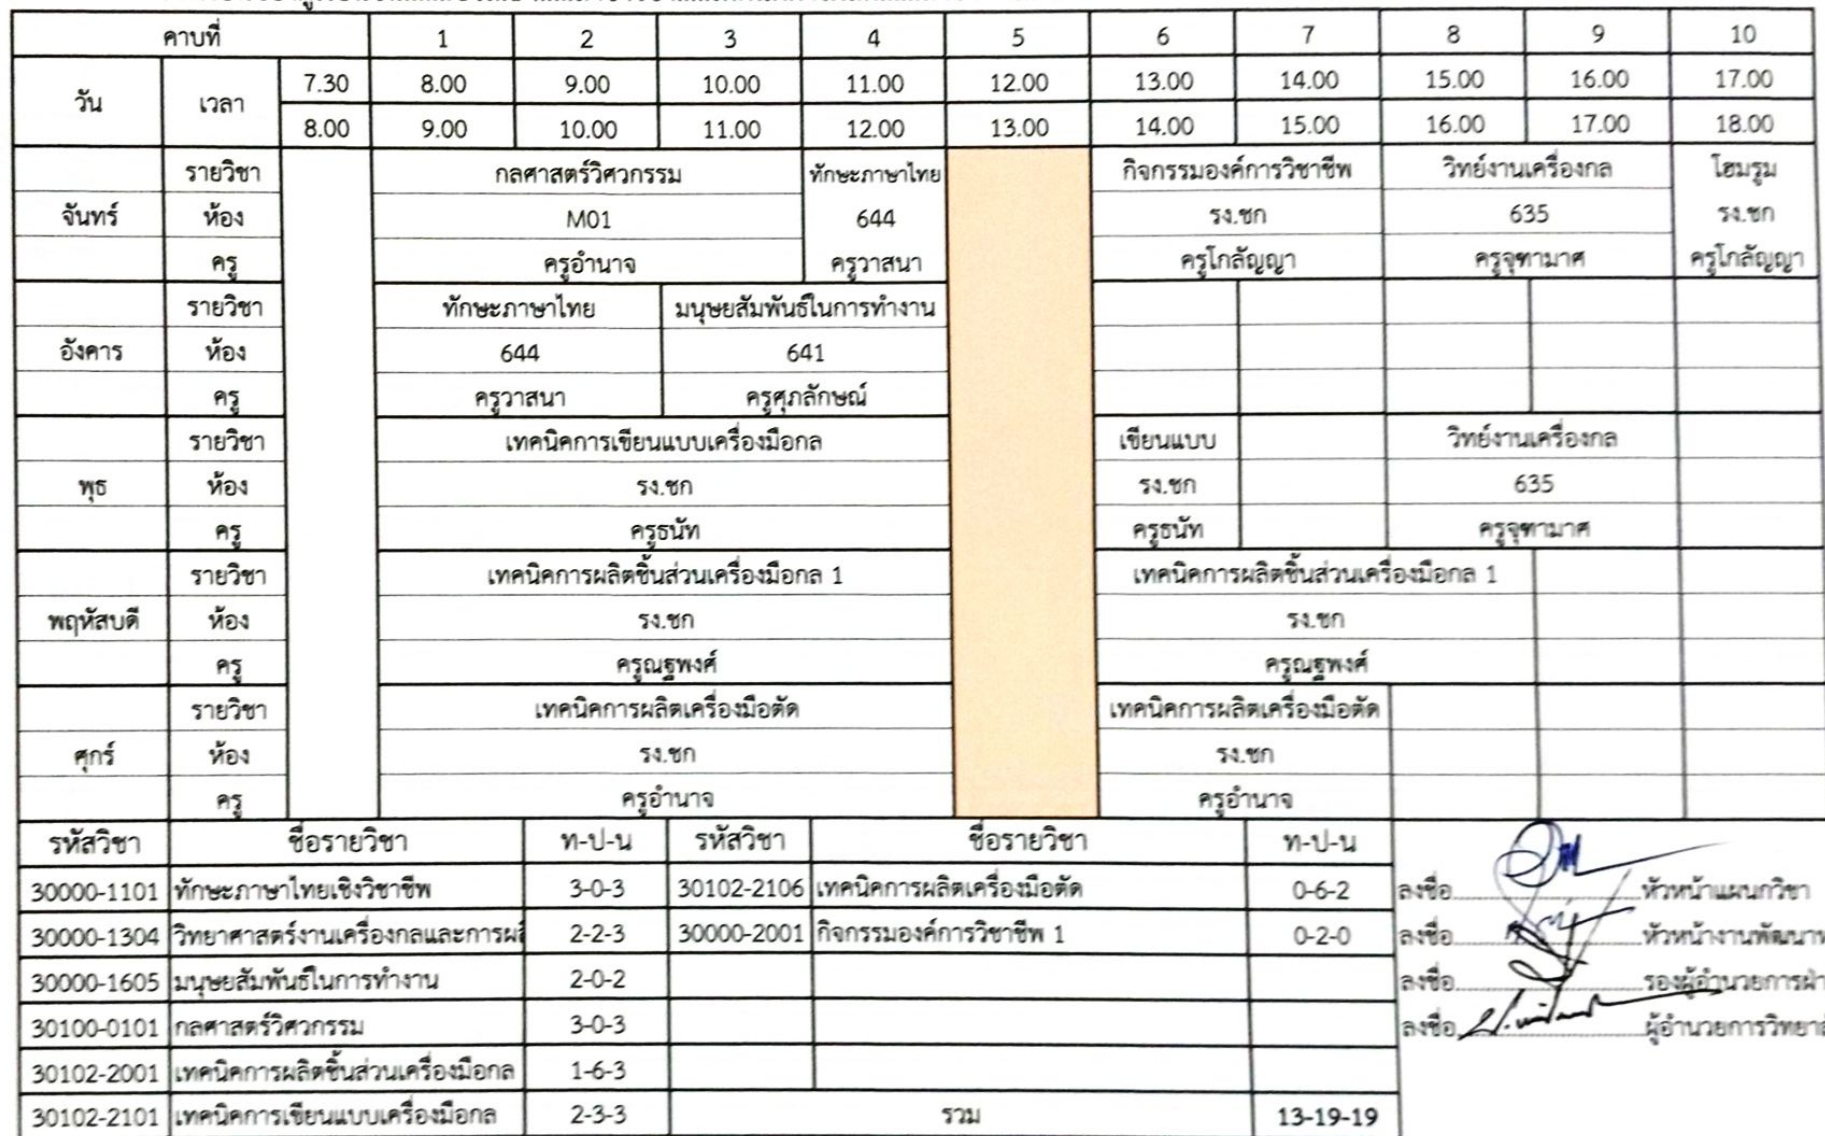 คาบที่ 1 2 3 4 5 6 7 8 9 10
วัน เวลา 7.30 8.00 9.00 10.00 11.00 12.00 13.00 14.00 15.00 16.00 17.00
8.00 9.00 10.00 11.00 12.00 13.00 14.00 15.00 16.00 17.00 18.00
รายวิชา กลศาสตร์วิศวกรรม ทักษะภาษาไทย กิจกรรมองค์การวิชาชีพ วิทย์งานเครื่องกล โฮมรูม
จันทร์ ห้อง M01 644 รง.ชก 635 รง.ชก
ครู ครูอำนาจ ครูวาสนา ครูโกสัญญา ครูจุฑามาศ ครูโกสัญญา
รายวิชา ทักษะภาษาไทย มนุษยสัมพันธ์ในการทำงาน
อังคาร ห้อง 644 641
ครู ครูวาสนา ครูศุภลักษณ์
รายวิชา เทคนิคการเขียนแบบเครื่องมือกล เขียนแบบ วิทย์งานเครื่องกล
พุธ ห้อง รง.ชก รง.ชก 635
ครู ครูธนัท ครูธนัท ครูจุฑามาศ
รายวิชา เทคนิคการผลิตชิ้นส่วนเครื่องมือกล 1 เทคนิคการผลิตชิ้นส่วนเครื่องมือกล 1
พฤหัสบดี ห้อง รง.ชก รง.ชก
ครู ครูณฐพงศ์ ครูณฐพงศ์
รายวิชา เทคนิคการผลิตเครื่องมือตัด เทคนิคการผลิตเครื่องมือตัด
ศุกร์ ห้อง รง.ชก รง.ชก
ครู ครูอำนาจ ครูอำนาจ
รหัสวิชา ชื่อรายวิชา ท-ป-น รหัสวิชา ชื่อรายวิชา ท-ป-น
30000-1101 ทักษะภาษาไทยเชิงวิชาชีพ 3-0-3 30102-2106 เทคนิคการผลิตเครื่องมือตัด 0-6-2 ลงชื่อ หัวหน้าแผนกวิชา
30000-1304 วิทยาศาสตร์งานเครื่องกลและการผลิ 2-2-3 30000-2001 กิจกรรมองค์การวิชาชีพ 1 0-2-0 ลงชื่อ หัวหน้างานพัฒนาห
30000-1605 มนุษยสัมพันธ์ในการทำงาน 2-0-2 ลงชื่อ รองผู้อำนวยการฝ่า
30100-0101 กลศาสตร์วิศวกรรม 3-0-3 ลงชื่อ ผู้อำนวยการวิทยาลั
30102-2001 เทคนิคการผลิตชิ้นส่วนเครื่องมือกล 1-6-3
30102-2101 เทคนิคการเขียนแบบเครื่องมือกล 2-3-3 รวม 13-19-19